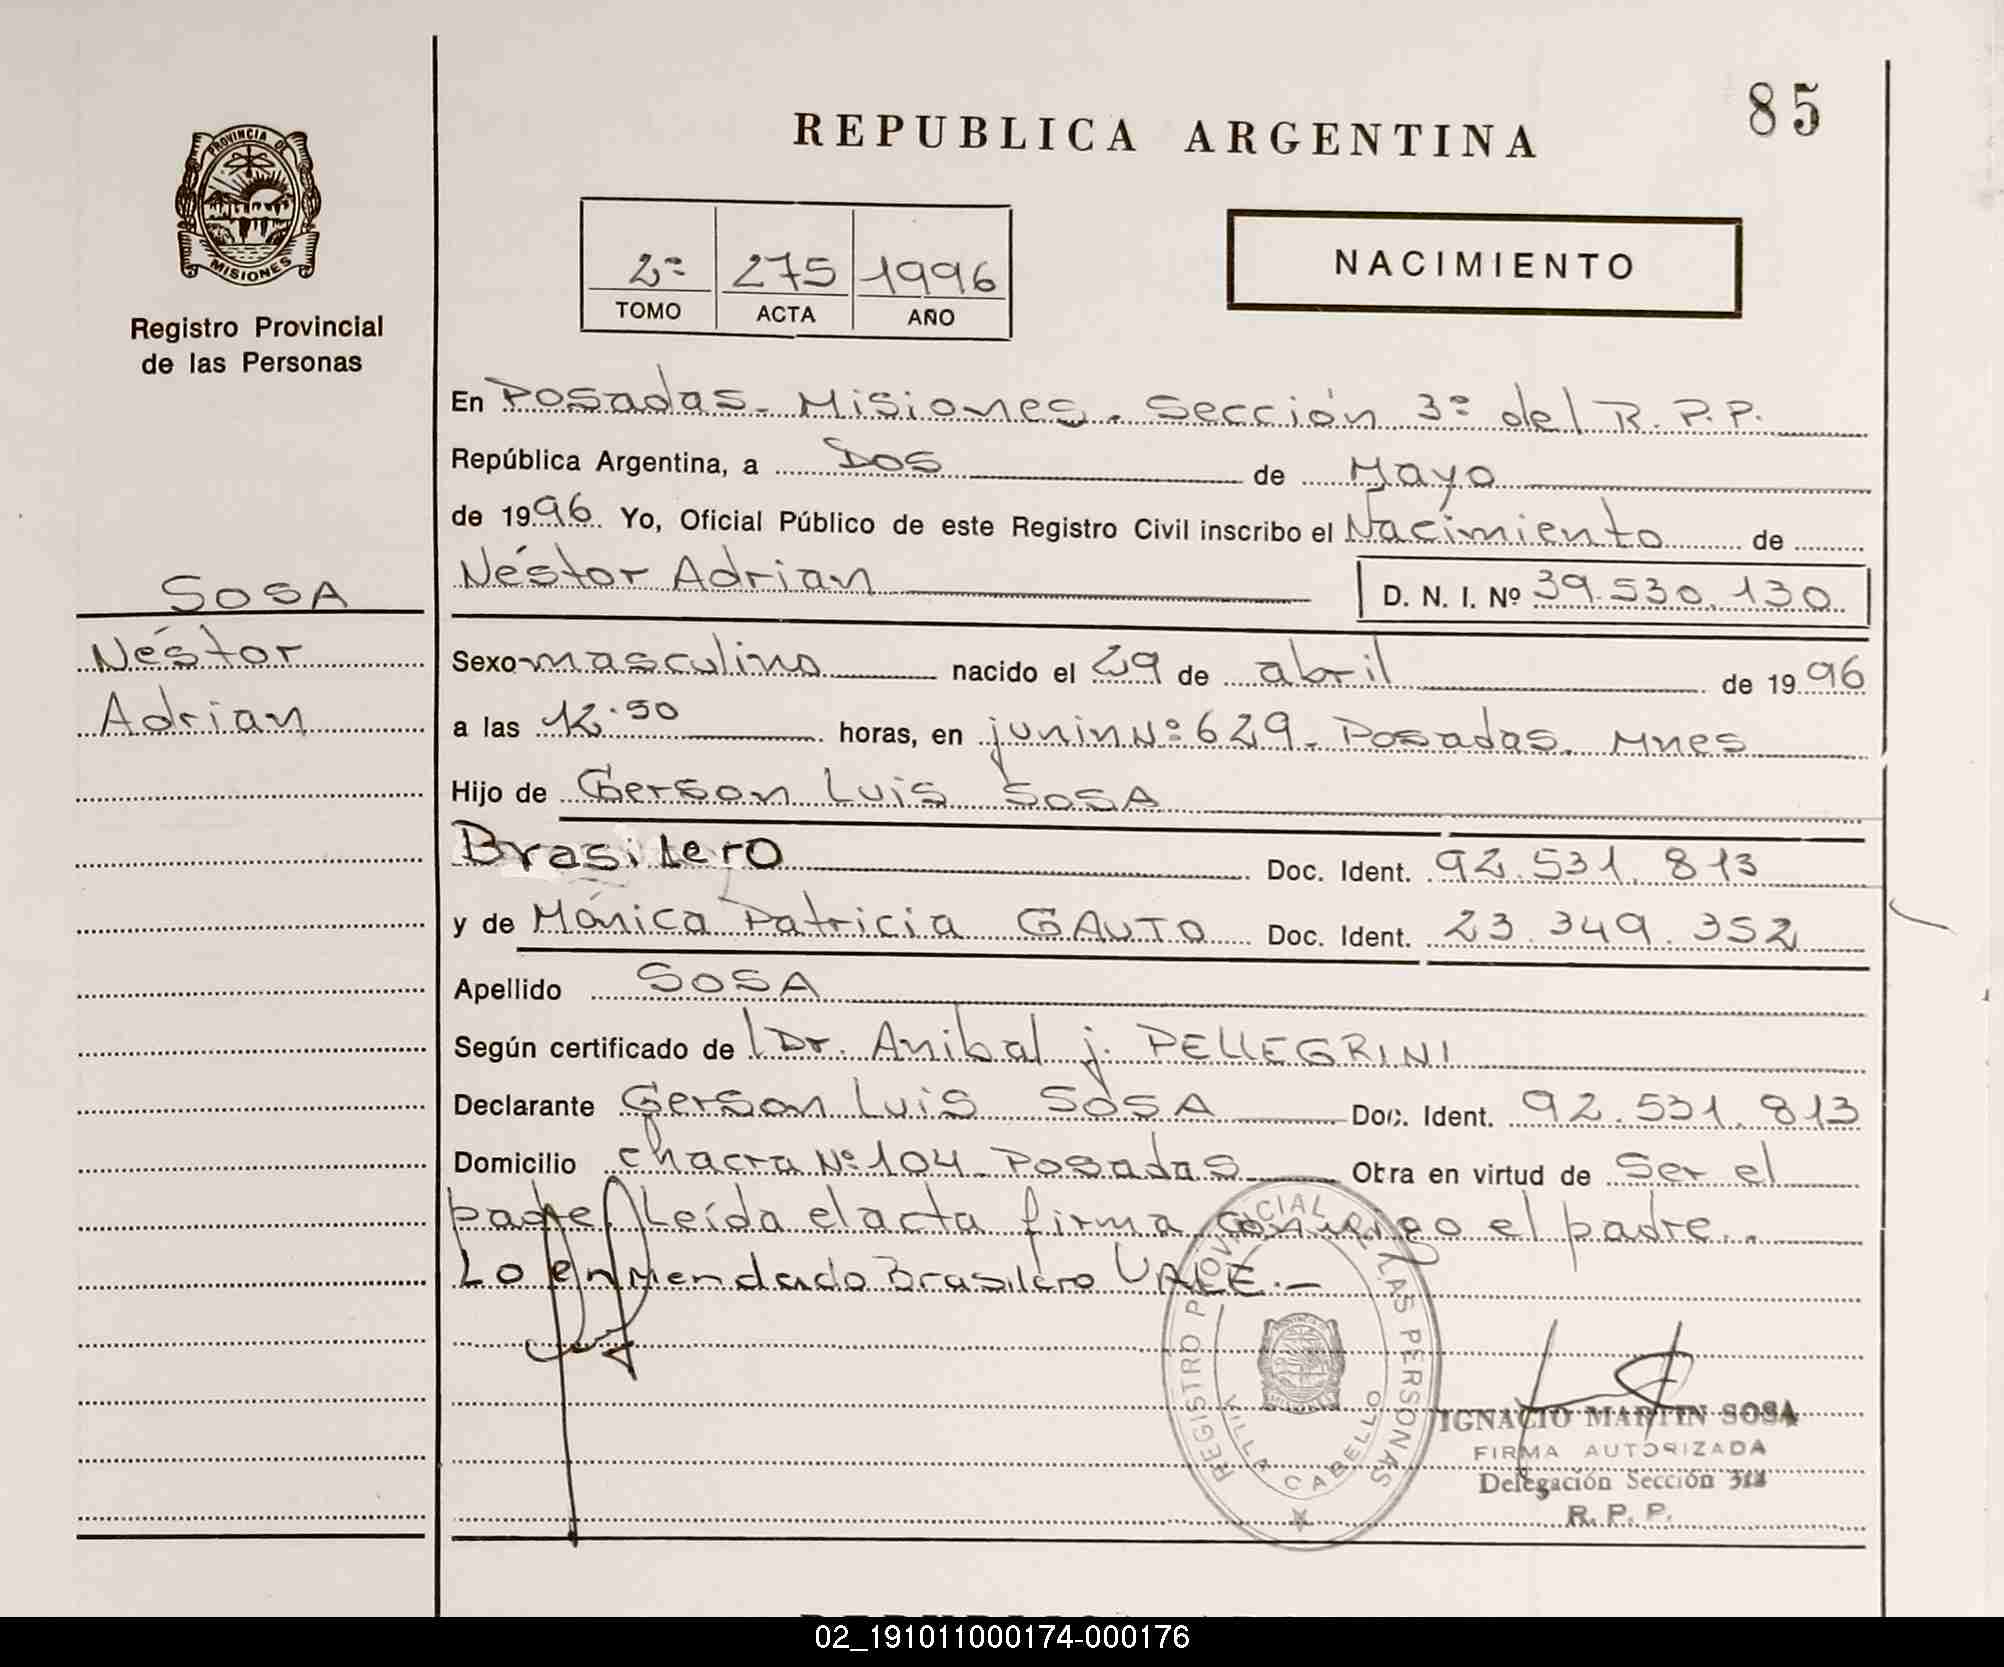 85
REPUBLICA ARGENTINA
PROVINCIA DE
MISIONES
Registro Provincial
de las Personas
2º 275 1996
TOMO ACTA AÑO
NACIMIENTO
En Posadas - Misiones - Sección 3º del R.P.P.
República Argentina, a Dos de Mayo
de 1996 Yo, Oficial Público de este Registro Civil inscribo el Nacimiento de
Néstor Adrian D. N. I. Nº 39.530.130
SOSA
Néstor
Adrian
Sexo masculino nacido el 29 de abril de 1996
a las 12.50 horas, en junin Nº 629 - Posadas. Mnes
Hijo de Gerson Luis SOSA
Brasilero Doc. Ident. 92.531.813
y de Mónica Patricia GAUTO Doc. Ident. 23.349.352
Apellido SOSA
Según certificado de Dr. Anibal j. PELLEGRINI
Declarante Gerson Luis SOSA Doc. Ident. 92.531.813
Domicilio chacra Nº 104 - Posadas Obra en virtud de ser el
padre. Leída el acta firma conmigo el padre..
Lo enmendado Brasilero VALE.-
REGISTRO PROVINCIAL DE LAS PERSONAS
VILLA CABELLO
IGNACIO MARTIN SOSA
FIRMA AUTORIZADA
Delegación Sección
R. P. P.
02_191011000174-000176